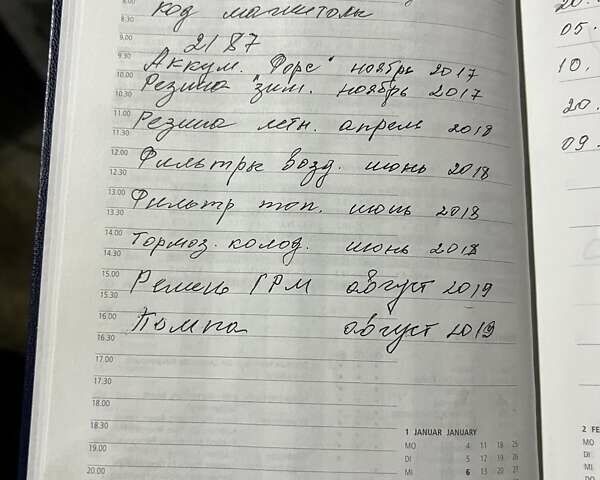 код магнитолы
8.30
2187
9.00
Аккум. "Форс" ноябрь 2017
10.00
Резина "зим. ноябрь 2017
10.30
11.00
Резина летн. апрель 2018
11.30
12.00
Фильтры возд. июнь 2018
12.30
13.00
Фильтр топ. июнь 2018
13.30
14.00
Тормоз. колод. июнь 2018
14.30
15.00
Ремень ГРМ август 2019
15.30
16.00
Помпа август 2019
16.30
17.00
17.30
18.00
18.30
19.00
20.00
1 JANUAR JANUARY
MO 4 11 18 25
DI 5 12 19 26
MI 6 13 20 27
20.
05.
10.
20.
09.
2 FE
MO
DI
MI
DO